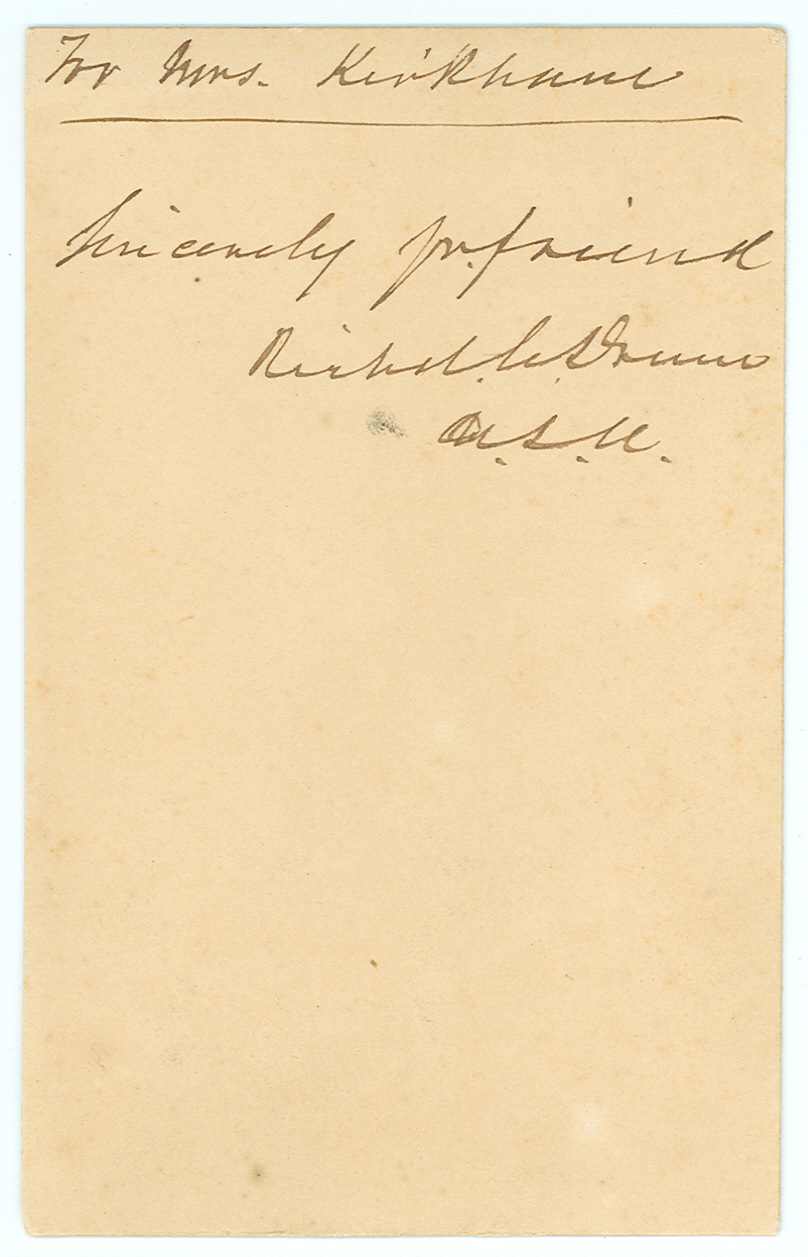 For Mrs. Kirkham
Sincerely yr. friend
Richd. C. Drum
U.S.A.